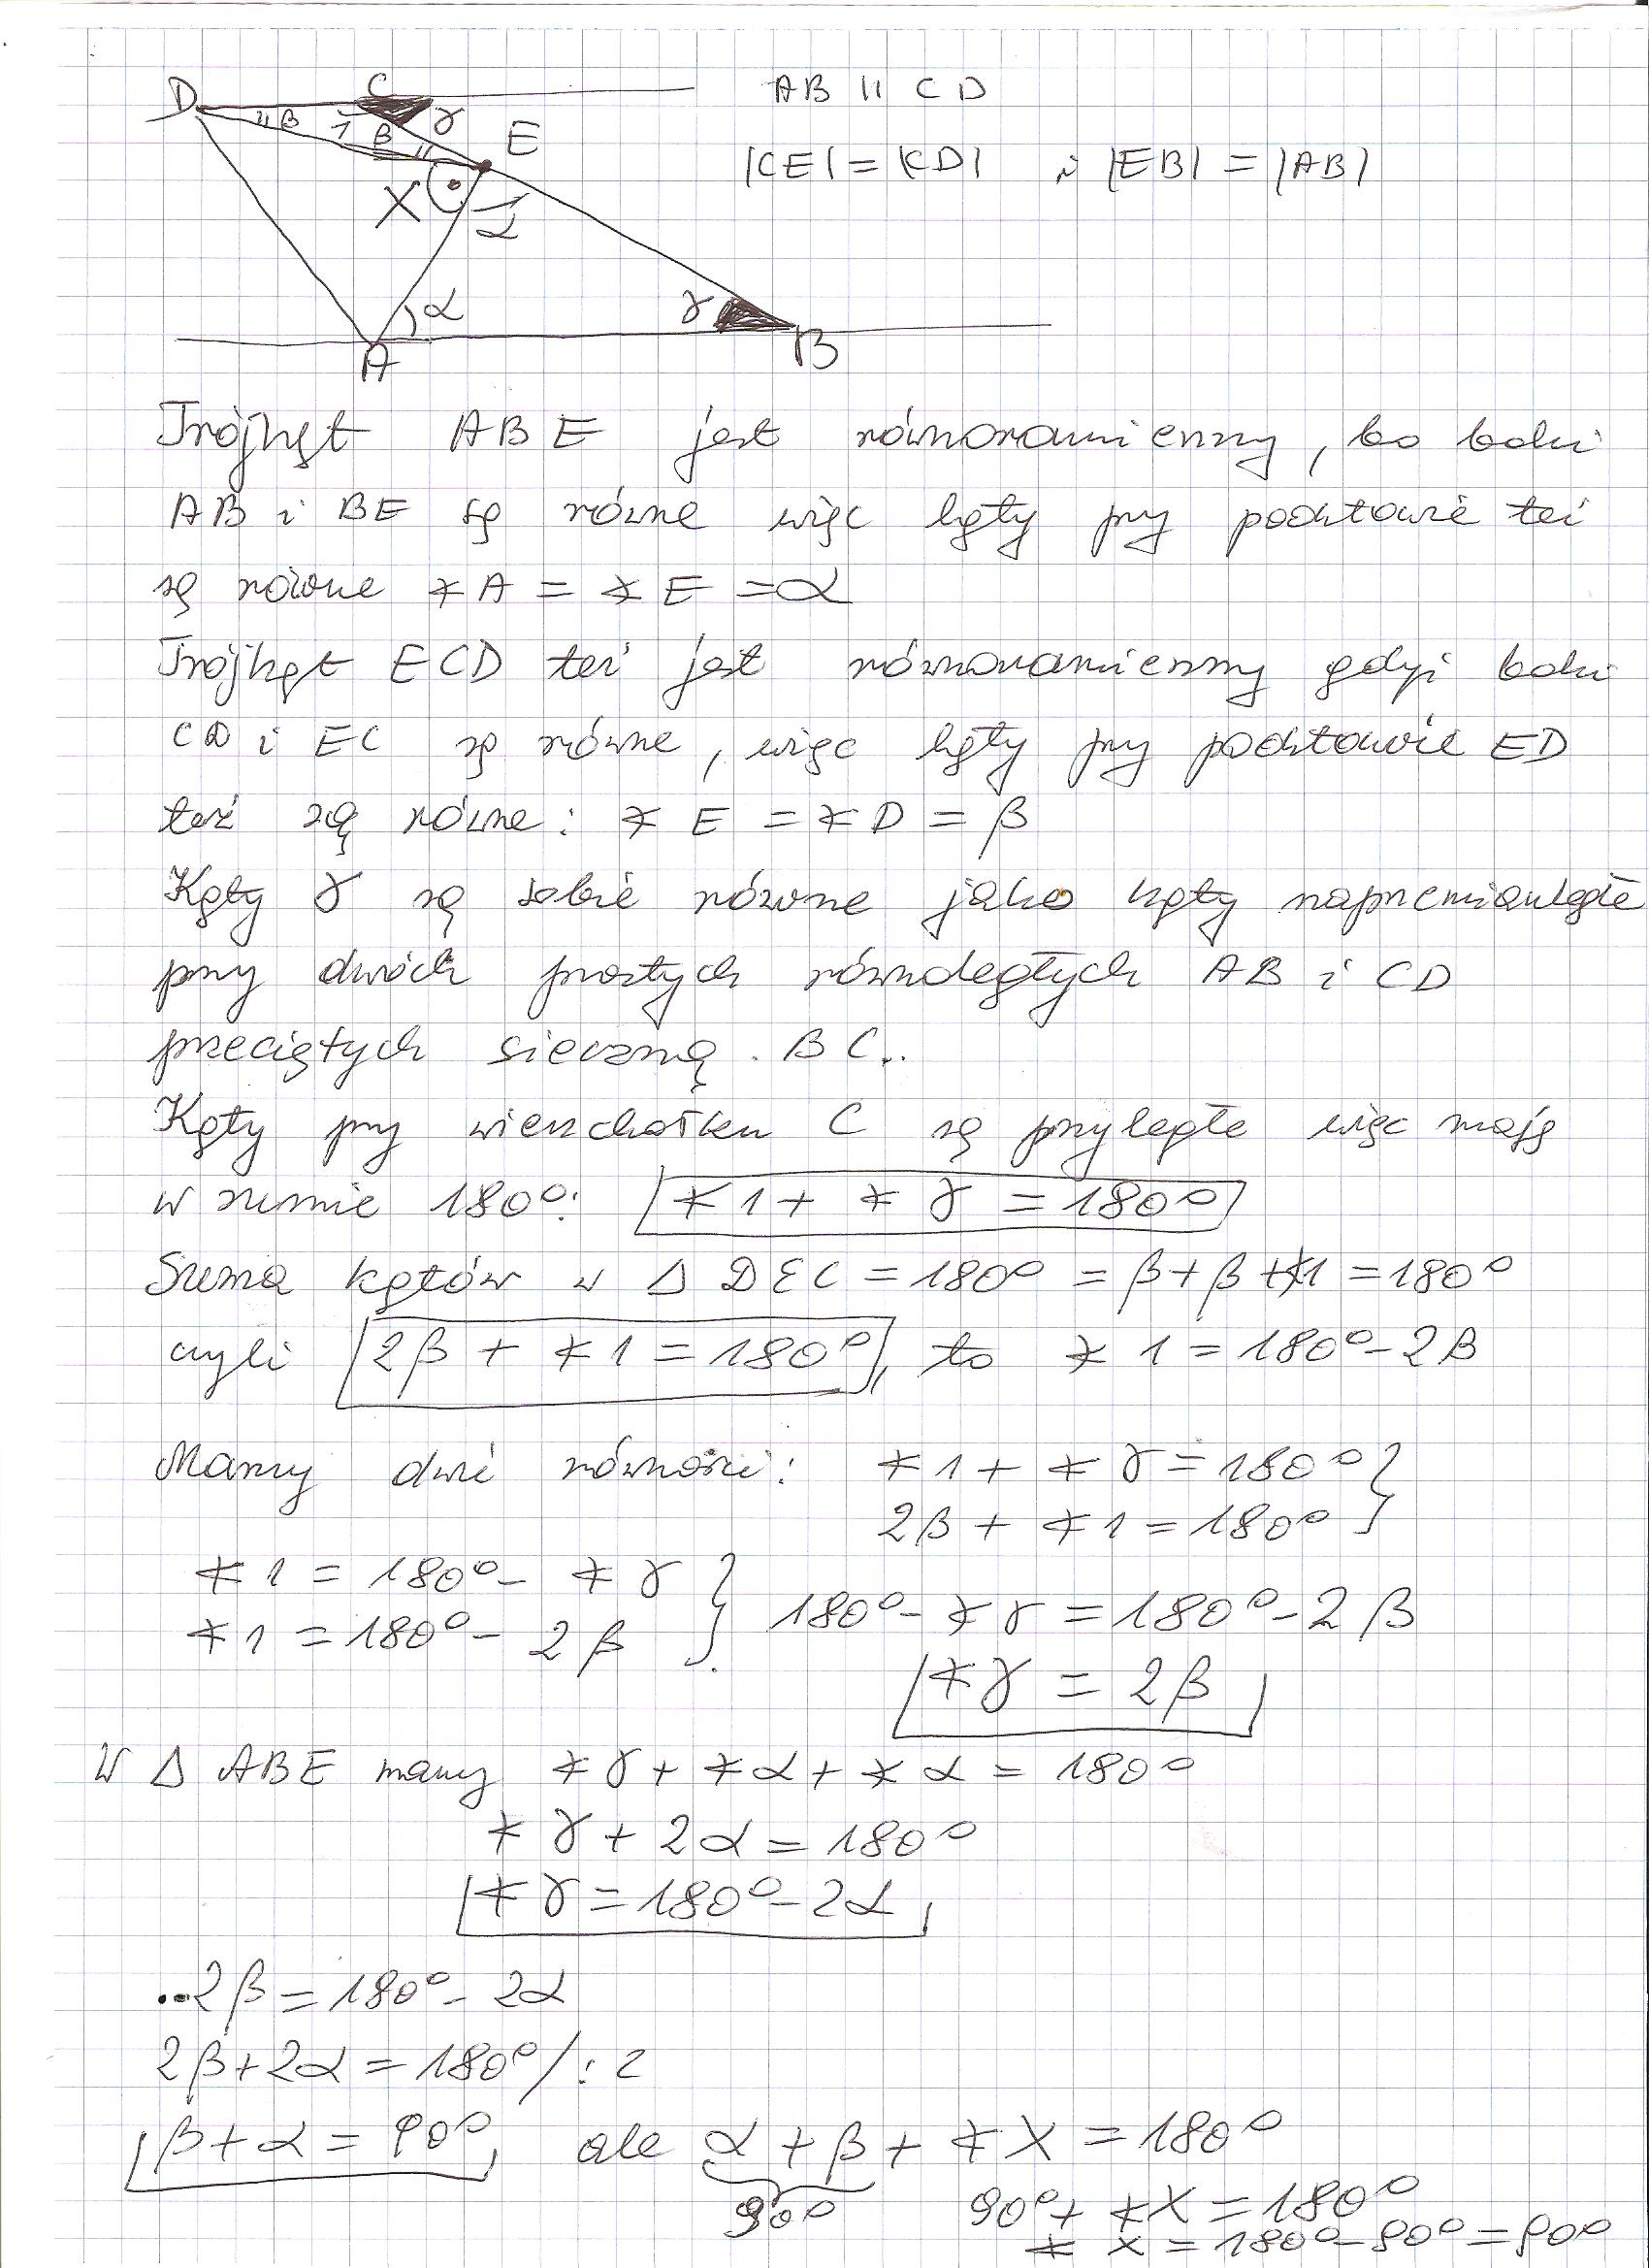 D C γ E
β 1 β
X α
A α γ B
AB || CD
|CE| = |CD| i |EB| = |AB|
Trójkąt ABE jest równoramienny, bo boki
AB i BE są równe więc kąty przy podstawie też
są równe ∢ A = ∢ E = α
Trójkąt ECD też jest równoramienny gdyż boki
CD i EC są równe, więc kąty przy podstawie ED
też są równe: ∢ E = ∢ D = β
Kąty γ są sobie równe jako kąty naprzemianległe
przy dwóch prostych równoległych AB i CD
przeciętych sieczną BC.
Kąty przy wierzchołku C są przyległe więc mają
w sumie 180°: ∢ 1 + ∢ γ = 180°
Suma kątów w Δ DEC = 180° = β + β + ∢1 = 180°
czyli 2β + ∢ 1 = 180°, to ∢ 1 = 180° - 2β
Mamy dwie równości: ∢ 1 + ∢ γ = 180° }
2β + ∢ 1 = 180°
∢ 1 = 180° - ∢ γ }
∢ 1 = 180° - 2β
180° - ∢ γ = 180° - 2β
∢ γ = 2β
W Δ ABE mamy ∢ γ + ∢ α + ∢ α = 180°
∢ γ + 2α = 180°
∢ γ = 180° - 2α
2β = 180° - 2α
2β + 2α = 180° / : 2
β + α = 90°, ale α + β + ∢ X = 180°
90°
90° + ∢ X = 180°
∢ X = 180° - 90° = 90°